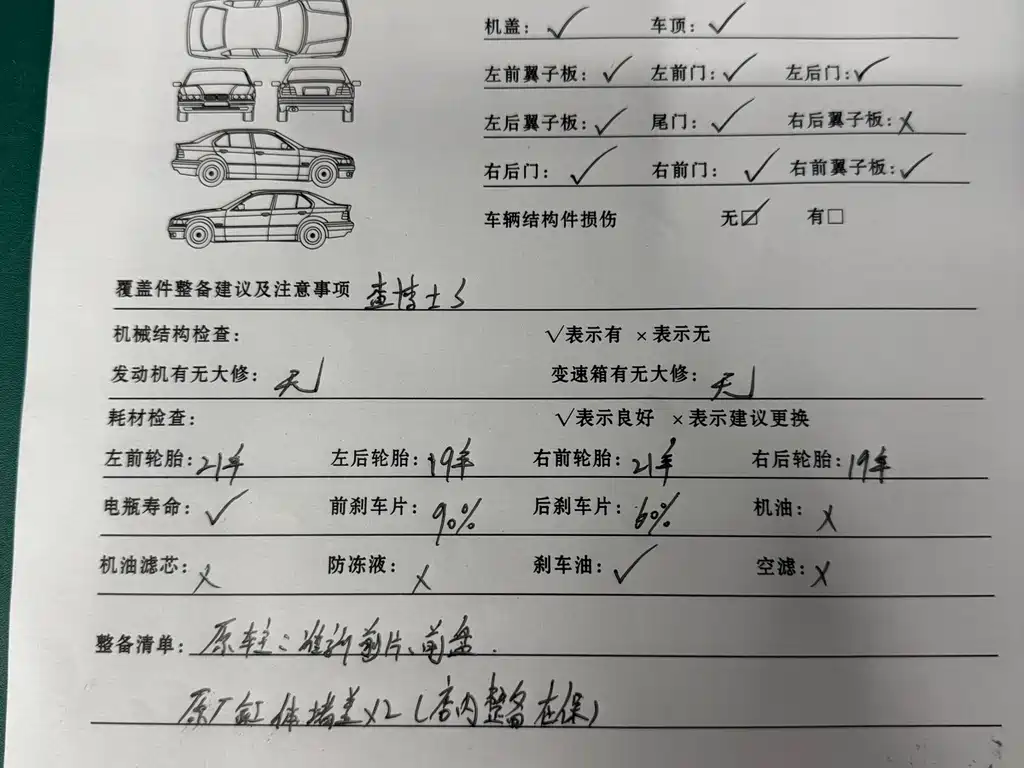 机盖：√ 车顶：√
左前翼子板：√ 左前门：√ 左后门：√
左后翼子板：√ 尾门：√ 右后翼子板：×
右后门：√ 右前门：√ 右前翼子板：√
车辆结构件损伤 无☑ 有□
覆盖件整备建议及注意事项 查博士S
机械结构检查： √表示有 ×表示无
发动机有无大修：无 变速箱有无大修：无
耗材检查： √表示良好 ×表示建议更换
左前轮胎：21年 左后轮胎：19年 右前轮胎：21年 右后轮胎：19年
电瓶寿命：√ 前刹车片：90% 后刹车片：60% 机油：×
机油滤芯：× 防冻液：× 刹车油：√ 空滤：×
整备清单：原车主：准新前片、前盘.
原厂缸体堵盖×2（店内整备在保）